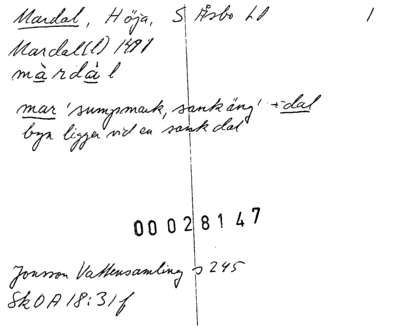 Mardal, Höja, S Åsbo hd 1
Mardal(l) 1491
màrdàl
mar 'sumpmark, sankäng' + dal
byn ligger vid en sank dal
00028147
Jonsson Vattensamling s 245
SkOA 18:31f